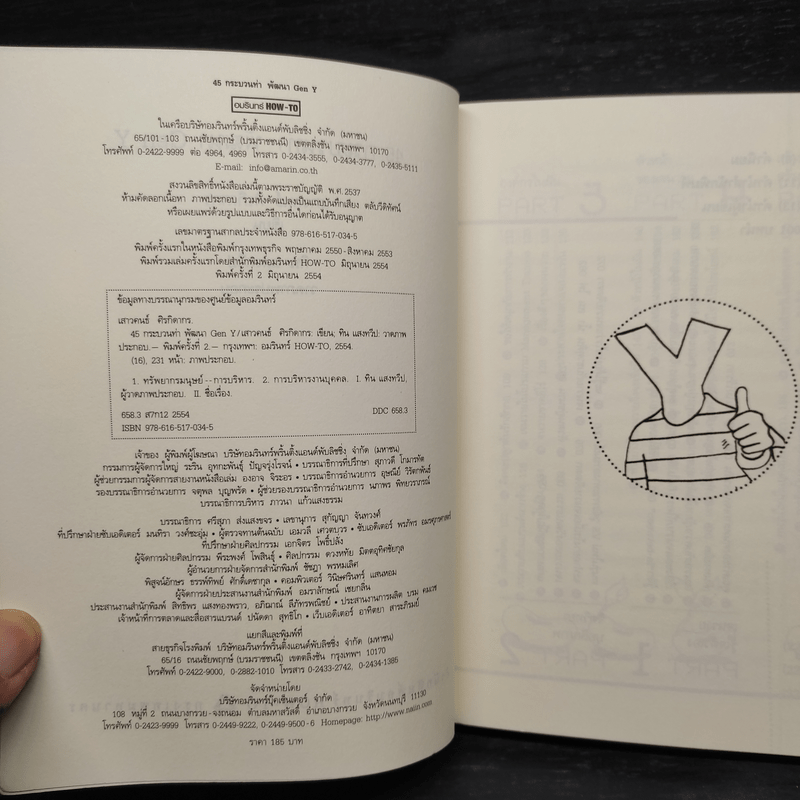 45 กระบวนท่า พัฒนา Gen Y
อมรินทร์ HOW-TO
ในเครือบริษัทอมรินทร์พริ้นติ้งแอนด์พับลิชชิ่ง จำกัด (มหาชน)
65/101-103 ถนนชัยพฤกษ์ (บรมราชชนนี) เขตตลิ่งชัน กรุงเทพฯ 10170
โทรศัพท์ 0-2422-9999 ต่อ 4964, 4969 โทรสาร 0-2434-3555, 0-2434-3777, 0-2435-5111
E-mail: info@amarin.co.th
สงวนลิขสิทธิ์หนังสือเล่มนี้ตามพระราชบัญญัติ พ.ศ.2537
ห้ามคัดลอกเนื้อหา ภาพประกอบ รวมทั้งดัดแปลงเป็นแถบบันทึกเสียง ตลับวีดิทัศน์
หรือเผยแพร่ด้วยรูปแบบและวิธีการอื่นใดก่อนได้รับอนุญาต
เลขมาตรฐานสากลประจำหนังสือ 978-616-517-034-5
พิมพ์ครั้งแรกในหนังสือพิมพ์กรุงเทพธุรกิจ พฤษภาคม 2550-สิงหาคม 2553
พิมพ์รวมเล่มครั้งแรกโดยสำนักพิมพ์อมรินทร์ HOW-TO มิถุนายน 2554
พิมพ์ครั้งที่ 2 มิถุนายน 2554
ข้อมูลทางบรรณานุกรมของศูนย์ข้อมูลอมรินทร์
เสาวคนธ์ ศิรกิดากร.
45 กระบวนท่า พัฒนา Gen Y/เสาวคนธ์ ศิรกิดากร: เขียน; ทิน แสงทวีป: วาดภาพ
ประกอบ.— พิมพ์ครั้งที่ 2.— กรุงเทพฯ: อมรินทร์ HOW-TO, 2554.
(16), 231 หน้า: ภาพประกอบ.
1. ทรัพยากรมนุษย์--การบริหาร. 2. การบริหารงานบุคคล. I. ทิน แสงทวีป,
ผู้วาดภาพประกอบ. II. ชื่อเรื่อง.
658.3 ส7ก12 2554 DDC 658.3
ISBN 978-616-517-034-5
เจ้าของ ผู้พิมพ์ผู้โฆษณา บริษัทอมรินทร์พริ้นติ้งแอนด์พับลิชชิ่ง จำกัด (มหาชน)
กรรมการผู้จัดการใหญ่ ระริน อุทกะพันธุ์ ปัญจรุ่งโรจน์ • บรรณาธิการที่ปรึกษา สุภาวดี โกมารทัต
ผู้ช่วยกรรมการผู้จัดการสายงานหนังสือเล่ม องอาจ จิระอร • บรรณาธิการอำนวยการ อุษณีย์ วิรัตกพันธ์
รองบรรณาธิการอำนวยการ จตุพล บุญพรัด • ผู้ช่วยรองบรรณาธิการอำนวยการ นภาพร พิทยวราภรณ์
บรรณาธิการบริหาร ภาวนา แก้วแสงธรรม
บรรณาธิการ ศรีสุภา ส่งแสงขจร • เลขานุการ สุกัญญา จันทวงศ์
ที่ปรึกษาฝ่ายซับเอดิเตอร์ มนทิรา วงศ์ชะอุ่ม • ผู้ตรวจทานต้นฉบับ เอมวลี เศวตบวร • ซับเอดิเตอร์ พรภัทร
ที่ปรึกษาฝ่ายศิลปกรรม เอกจิตร โพธิ์ปลั่ง
ผู้จัดการฝ่ายศิลปกรรม พีระพงศ์ โพสินธุ์ • ศิลปกรรม ดวงหทัย มิตตอุทิศชัยกุล
ผู้อำนวยการฝ่ายจัดการสำนักพิมพ์ ชัชฎา พรหมเลิศ
พิสูจน์อักษร ธรรพ์ทิพย์ ศักดิ์เดชากุล • คอมพิวเตอร์ วินิษครินทร์ แสนหอม
ผู้จัดการฝ่ายประสานงานสำนักพิมพ์ อมราลักษณ์ เชยกลิ่น
ประสานงานสำนักพิมพ์ สิทธิพร แสงทองพราว, อภิฌาณ์ ลีภัทรพณิชย์ • ประสานงานการผลิต บรม คมเวช
เจ้าหน้าที่การตลาดและสื่อสารแบรนด์ ปนัดดา สุทธิโก • เว็บเอดิเตอร์ อาทิตยา สาระภิรมย์
แยกสีและพิมพ์ที่
สายธุรกิจโรงพิมพ์ บริษัทอมรินทร์พริ้นติ้งแอนด์พับลิชชิ่ง จำกัด (มหาชน)
65/16 ถนนชัยพฤกษ์ (บรมราชชนนี) เขตตลิ่งชัน กรุงเทพฯ 10170
โทรศัพท์ 0-2422-9000, 0-2882-1010 โทรสาร 0-2433-2742, 0-2434-1385
จัดจำหน่ายโดย
บริษัทอมรินทร์บุ๊คเซ็นเตอร์ จำกัด
108 หมู่ที่ 2 ถนนบางกรวย-จงถนอม ตำบลมหาสวัสดิ์ อำเภอบางกรวย จังหวัดนนทบุรี 11130
โทรศัพท์ 0-2423-9999 โทรสาร 0-2449-9222, 0-2449-9500-6 Homepage: http://www.naiin.com
ราคา 185 บาท
Y